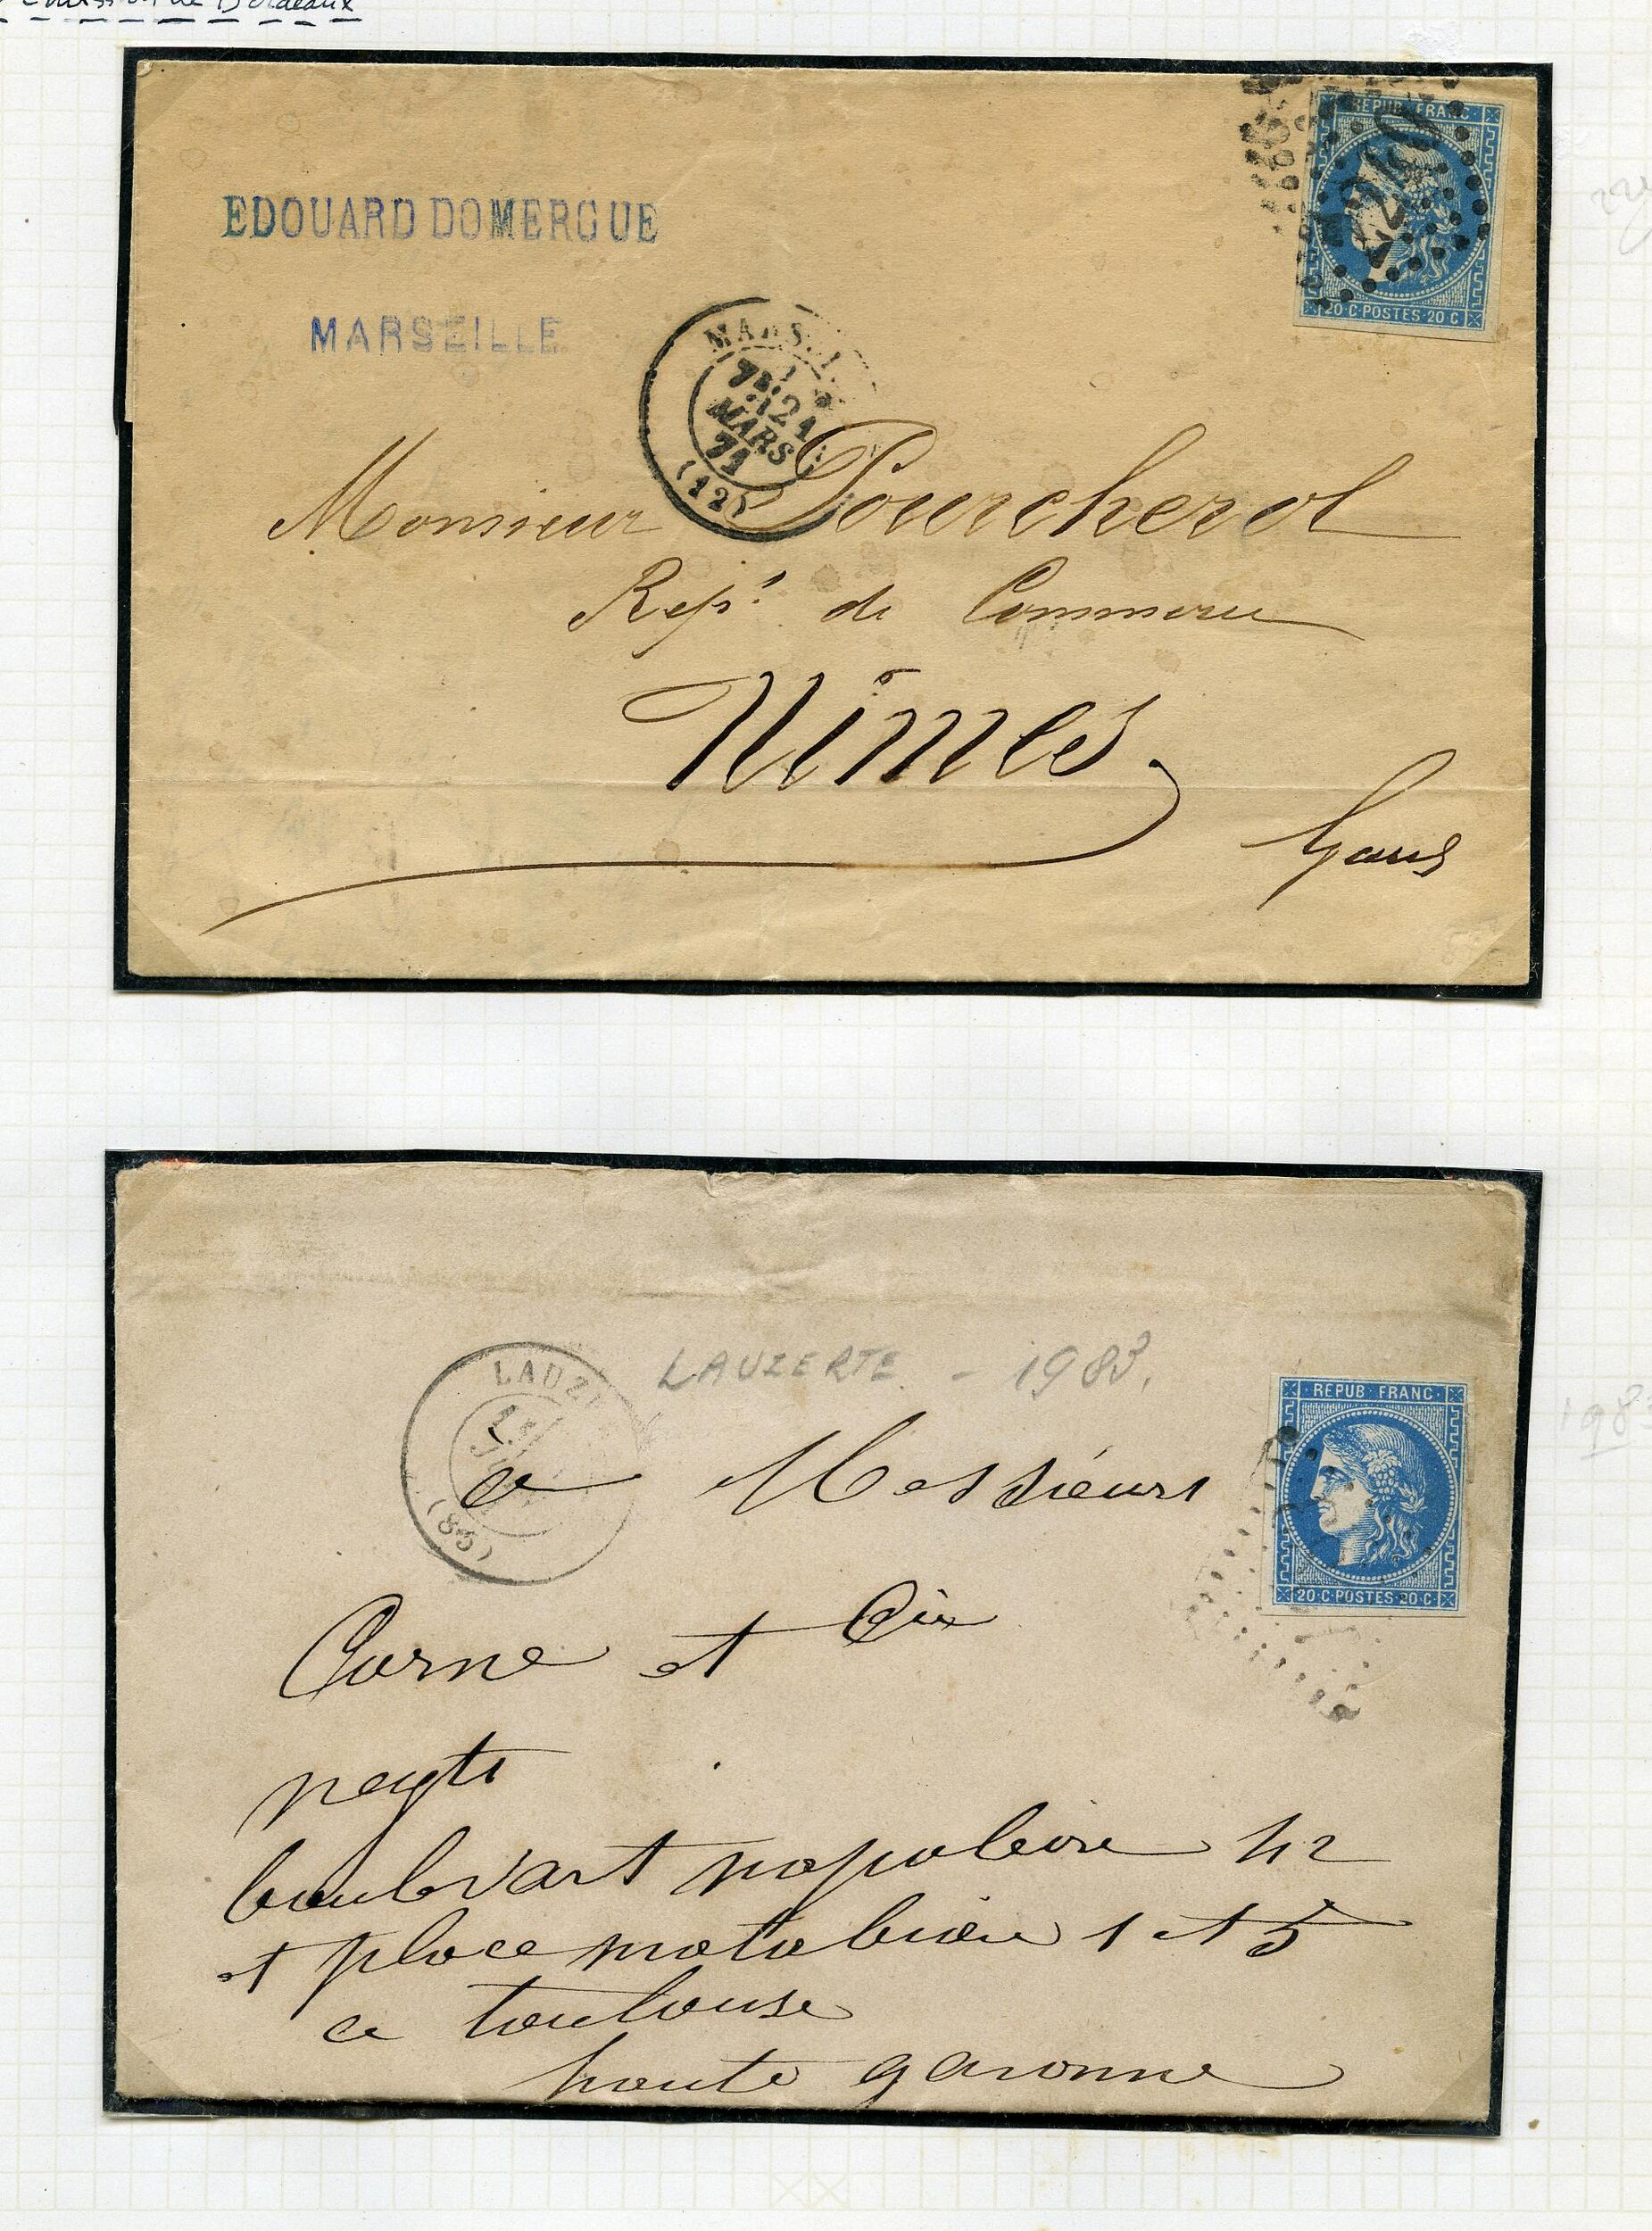 Emission de Bordeaux
EDOUARD DOMERGUE
MARSEILLE
REPUB FRANC
2240
20 C POSTES 20 C
7E
21
MARS
71
(12)
Monsieur Pourcherol
Rept de Commerce
Nîmes
Gard
LAUZERTE - 1983.
LAUZ
(83)
REPUB FRANC
20 C POSTES 20 C
a Messieurs
Corne et Cie
negts
boulevart napoleon 42
et place matabiau 1 et 5
a toulouse
haute garonne
198